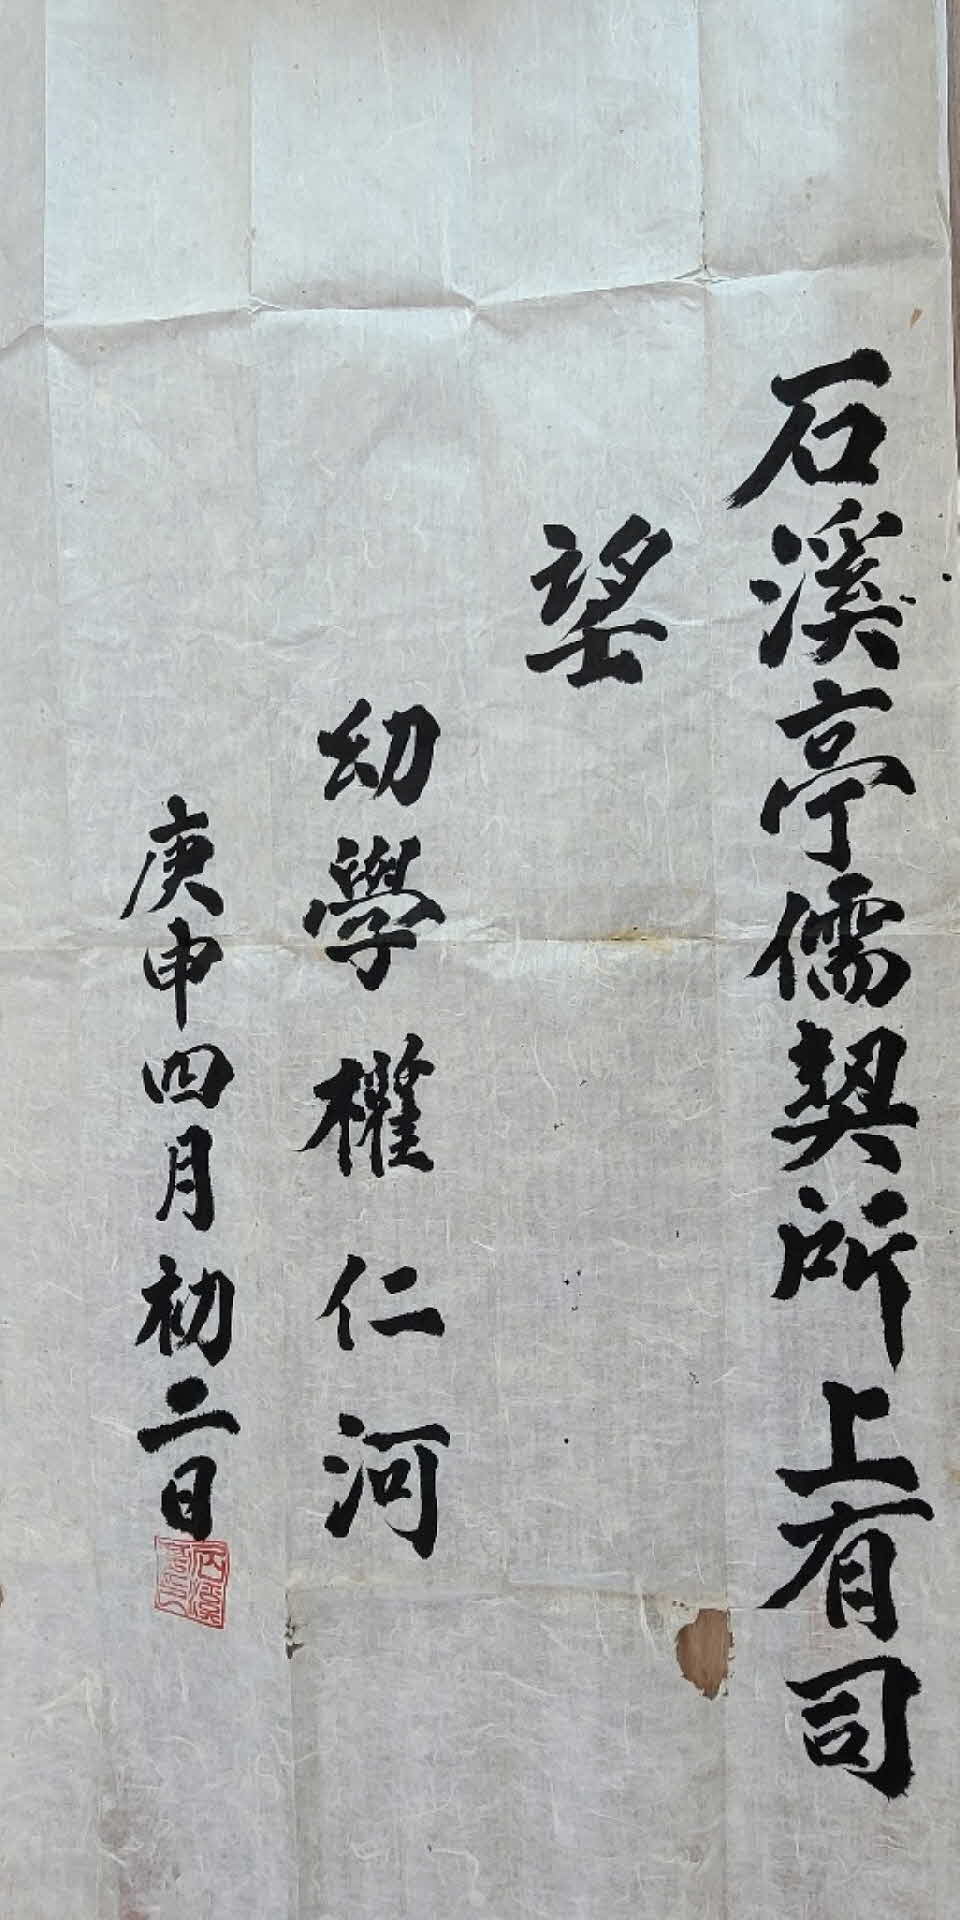 石溪亭儒契所上有司
望
幼學權仁河
庚申四月初二日
石溪